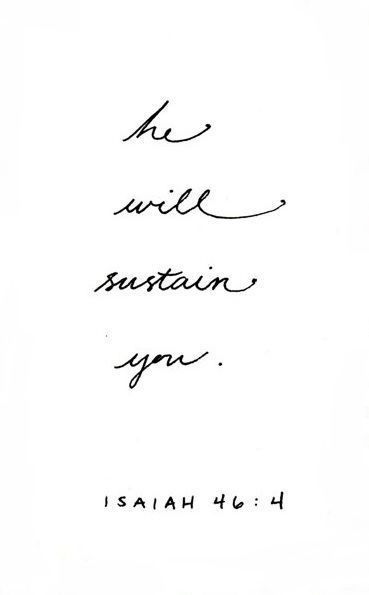 he
will
sustain
you.
ISAIAH 46:4